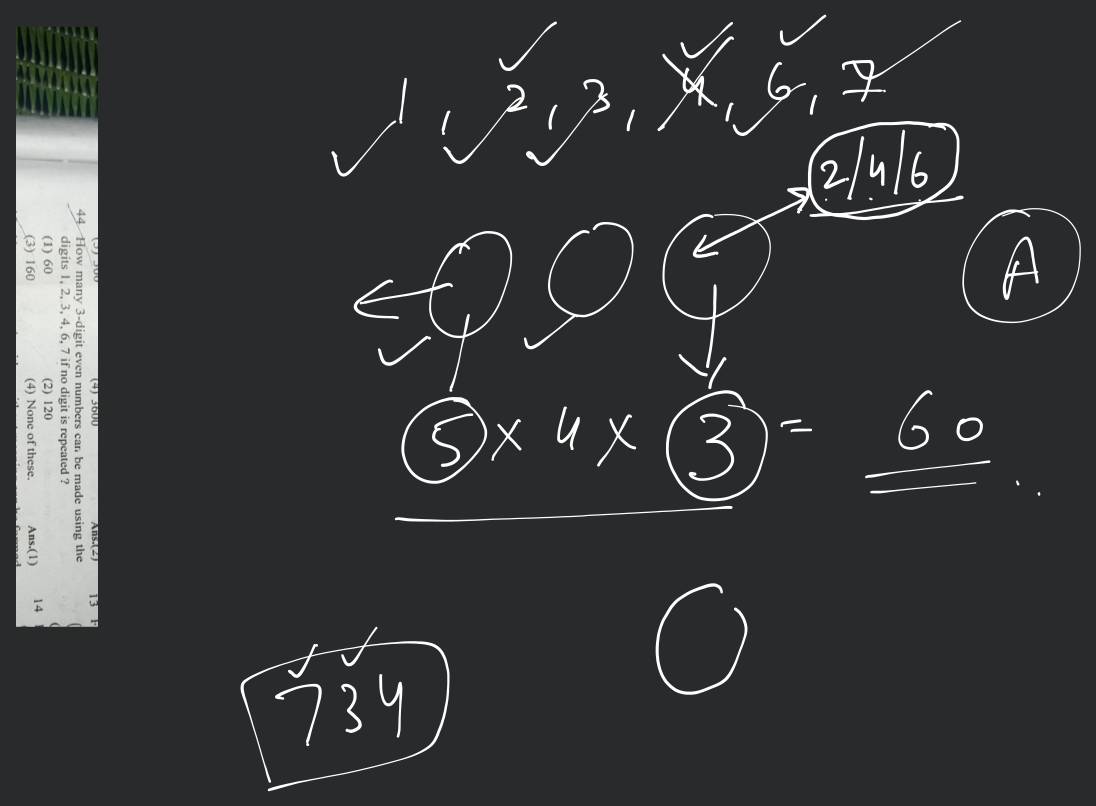 1, 2, 3, 4, 6, 7
2/4/6
A
5 x 4 x 3 = 60
734
(4) 3600
Ans.(2)
13
44 How many 3-digit even numbers can be made using the
digits 1, 2, 3, 4, 6, 7 if no digit is repeated ?
(1) 60
(2) 120
(3) 160
(4) None of these.
Ans.(1)
14